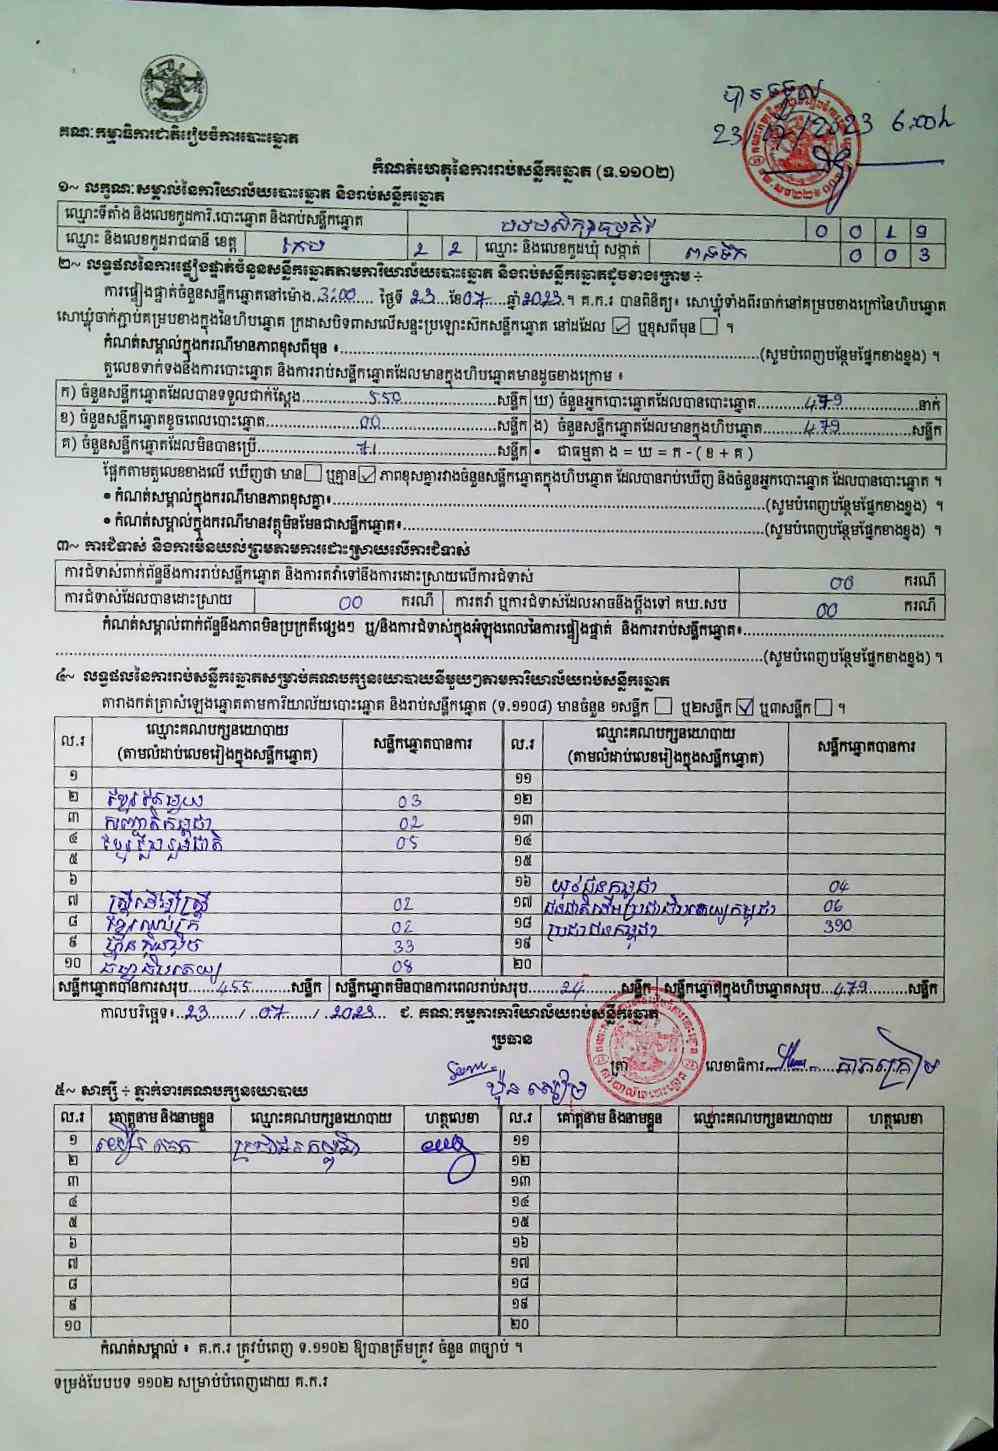 បានទទួល
23/07/2023 6:00h
គណៈកម្មាធិការជាតិរៀបចំការបោះឆ្នោត
កំណត់ហេតុនៃការរាប់សន្លឹកឆ្នោត (ទ.១១០២)
១~ លក្ខណៈសម្គាល់នៃការិយាល័យបោះឆ្នោត និងរាប់សន្លឹកឆ្នោត
ឈ្មោះទីតាំង និងលេខកូដការិ.បោះឆ្នោត និងរាប់សន្លឹកឆ្នោត 0 0 1 9
ឈ្មោះ និងលេខកូដរាជធានី ខេត្ត កែប 2 2 ឈ្មោះ និងលេខកូដឃុំ សង្កាត់ 0 0 3
២~ លទ្ធផលនៃការផ្ទៀងផ្ទាត់ចំនួនសន្លឹកឆ្នោតតាមការិយាល័យបោះឆ្នោត និងរាប់សន្លឹកឆ្នោតដូចខាងក្រោម ÷
ការផ្ទៀងផ្ទាត់ចំនួនសន្លឹកឆ្នោតនៅម៉ោង.3:00.... ថ្ងៃទី 23...ខែ07....ឆ្នាំ2023.។ គ.ក.រ បានពិនិត្យ៖ សោឃ្លុំទាំងពីរចាក់នៅគម្របខាងក្រៅនៃហិបឆ្នោត
សោឃ្លុំចាក់ភ្ជាប់គម្របខាងក្នុងនៃហិបឆ្នោត ក្រដាសបិទពាសលើសន្ទះប្រឡោះសឹកសន្លឹកឆ្នោត នៅដដែល ☑ ឬខុសពីមុន ☐ ។
កំណត់សម្គាល់ក្នុងករណីមានភាពខុសពីមុន ៖.....(សូមបំពេញបន្ថែមផ្នែកខាងខ្នង) ។
តួលេខទាក់ទងនឹងការបោះឆ្នោត និងការរាប់សន្លឹកឆ្នោតដែលមានក្នុងហិបឆ្នោតមានដូចខាងក្រោម ៖
ក) ចំនួនសន្លឹកឆ្នោតដែលបានទទួលជាក់ស្ដែង.....550.....សន្លឹក ឃ) ចំនួនអ្នកបោះឆ្នោតដែលបានបោះឆ្នោត.....479.....នាក់
ខ) ចំនួនសន្លឹកឆ្នោតខូចពេលបោះឆ្នោត.....00.....សន្លឹក ង) ចំនួនសន្លឹកឆ្នោតដែលមានក្នុងហិបឆ្នោត.....479.....សន្លឹក
គ) ចំនួនសន្លឹកឆ្នោតដែលមិនបានប្រើ.....71.....សន្លឹក • ជាធម្មតា ង = ឃ = ក - ( ខ + គ )
ផ្អែកតាមតួលេខខាងលើ ឃើញថា មាន ☐ ឬគ្មាន ☑ ភាពខុសគ្នារវាងចំនួនសន្លឹកឆ្នោតក្នុងហិបឆ្នោត ដែលបានរាប់ឃើញ និងចំនួនអ្នកបោះឆ្នោត ដែលបានបោះឆ្នោត ។
• កំណត់សម្គាល់ក្នុងករណីមានភាពខុសគ្នា៖.....(សូមបំពេញបន្ថែមផ្នែកខាងខ្នង) ។
• កំណត់សម្គាល់ក្នុងករណីមានវត្ថុមិនមែនជាសន្លឹកឆ្នោត៖.....(សូមបំពេញបន្ថែមផ្នែកខាងខ្នង) ។
៣~ ការជំទាស់ និងការមិនយល់ព្រមតាមការដោះស្រាយលើការជំទាស់
ការជំទាស់ពាក់ព័ន្ធនឹងការរាប់សន្លឹកឆ្នោត និងការតវ៉ាទៅនឹងការដោះស្រាយលើការជំទាស់ 00 ករណី
ការជំទាស់ដែលបានដោះស្រាយ 00 ករណី ការតវ៉ា ឬការជំទាស់ដែលអាចនឹងប្ដឹងទៅ គឃ.សប 00 ករណី
កំណត់សម្គាល់ពាក់ព័ន្ធនឹងភាពមិនប្រក្រតីផ្សេងៗ ឬ/និងការជំទាស់ក្នុងអំឡុងពេលនៃការផ្ទៀងផ្ទាត់ និងការរាប់សន្លឹកឆ្នោត៖.....
.....(សូមបំពេញបន្ថែមផ្នែកខាងខ្នង) ។
៤~ លទ្ធផលនៃការរាប់សន្លឹកឆ្នោតសម្រាប់គណបក្សនយោបាយនីមួយៗតាមការិយាល័យរាប់សន្លឹកឆ្នោត
តារាងកត់ត្រាសំឡេងឆ្នោតតាមការិយាល័យបោះឆ្នោត និងរាប់សន្លឹកឆ្នោត (ទ.១១០៨) មានចំនួន ១សន្លឹក ☐ ឬ២សន្លឹក ☑ ឬ៣សន្លឹក ☐ ។
ល.រ ឈ្មោះគណបក្សនយោបាយ (តាមលំដាប់លេខរៀងក្នុងសន្លឹកឆ្នោត) សន្លឹកឆ្នោតបានការ ល.រ ឈ្មោះគណបក្សនយោបាយ (តាមលំដាប់លេខរៀងក្នុងសន្លឹកឆ្នោត) សន្លឹកឆ្នោតបានការ
១ ១១
២ ខ្មែរតែមួយ 03 ១២
៣ សញ្ជាតិកម្ពុជា 02 ១៣
៤ ខ្មែររួបរួមជាតិ 05 ១៤
៥ ១៥
៦ ១៦ យុវជនកម្ពុជា 04
៧ ស្ត្រីដើម្បីស្ត្រី 02 ១៧ ជនជាតិដើមប្រជាធិបតេយ្យកម្ពុជា 06
៨ ខ្មែរឈប់ក្រ 02 ១៨ ប្រជាជនកម្ពុជា 390
៩ ហ្វ៊ុនស៊ិនប៉ិច 33 ១៩
១០ ធម្មាធិបតេយ្យ 08 ២០
សន្លឹកឆ្នោតបានការសរុប......455.........សន្លឹក សន្លឹកឆ្នោតមិនបានការពេលរាប់សរុប.......24........សន្លឹក សន្លឹកឆ្នោតក្នុងហិបឆ្នោតសរុប...479.........សន្លឹក
កាលបរិច្ឆេទ៖..23....../..07....../.2023... ជ. គណៈកម្មការការិយាល័យរាប់សន្លឹកឆ្នោត
ប្រធាន
ត្រា លេខាធិការ
៥~ សាក្សី ÷ ភ្នាក់ងារគណបក្សនយោបាយ
ល.រ គោត្តនាម និងនាមខ្លួន ឈ្មោះគណបក្សនយោបាយ ហត្ថលេខា ល.រ គោត្តនាម និងនាមខ្លួន ឈ្មោះគណបក្សនយោបាយ ហត្ថលេខា
១ ប្រជាជនកម្ពុជា ១១
២ ១២
៣ ១៣
៤ ១៤
៥ ១៥
៦ ១៦
៧ ១៧
៨ ១៨
៩ ១៩
១០ ២០
កំណត់សម្គាល់ ៖ គ.ក.រ ត្រូវបំពេញ ទ.១១០២ ឱ្យបានត្រឹមត្រូវ ចំនួន ៣ច្បាប់ ។
ទម្រង់បែបបទ ១១០២ សម្រាប់បំពេញដោយ គ.ក.រ